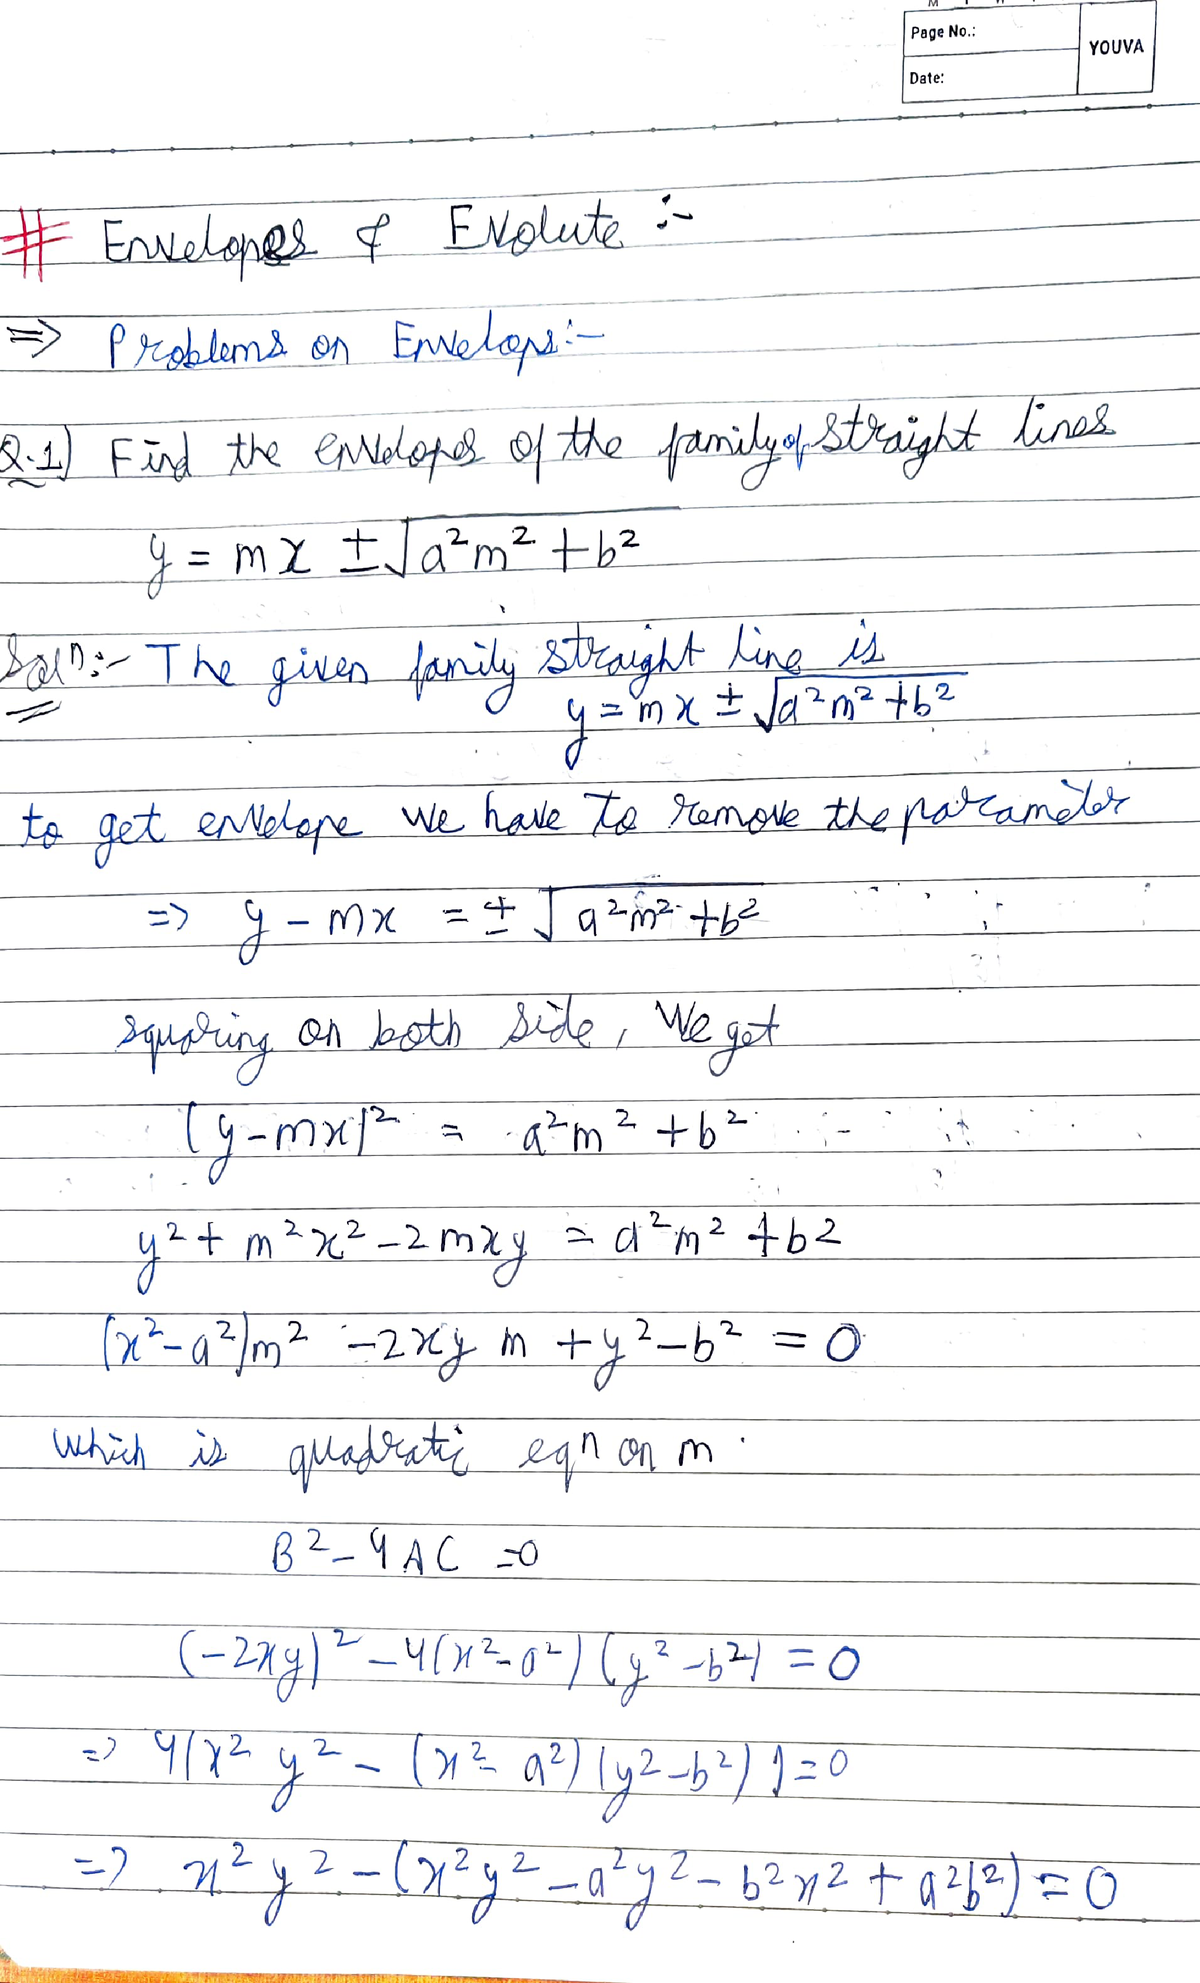 Page No.:
YOUVA
Date:
# Envelopes & Evolute :-
=> Problems on Envelops:-
Q.1) Find the envelopes of the family of straight lines
y = mx ± √a²m² + b²
Solⁿ:- The given family straight line is
y = mx ± √a²m² + b²
to get envelope we have to remove the parameter
=> y - mx = ± √a²m² + b²
squaring on both side, We get
(y-mx)² = a²m² + b²
y² + m²x² - 2mxy = a²m² + b²
(x²-a²)m² - 2xy m + y² - b² = 0
which is quadratic eqn on m.
B² - 4AC = 0
(-2xy)² - 4(x²-a²)(y²-b²) = 0
=> 4(x²y² - (x²-a²)(y²-b²)) = 0
=> x²y² - (x²y² - a²y² - b²x² + a²b²) = 0